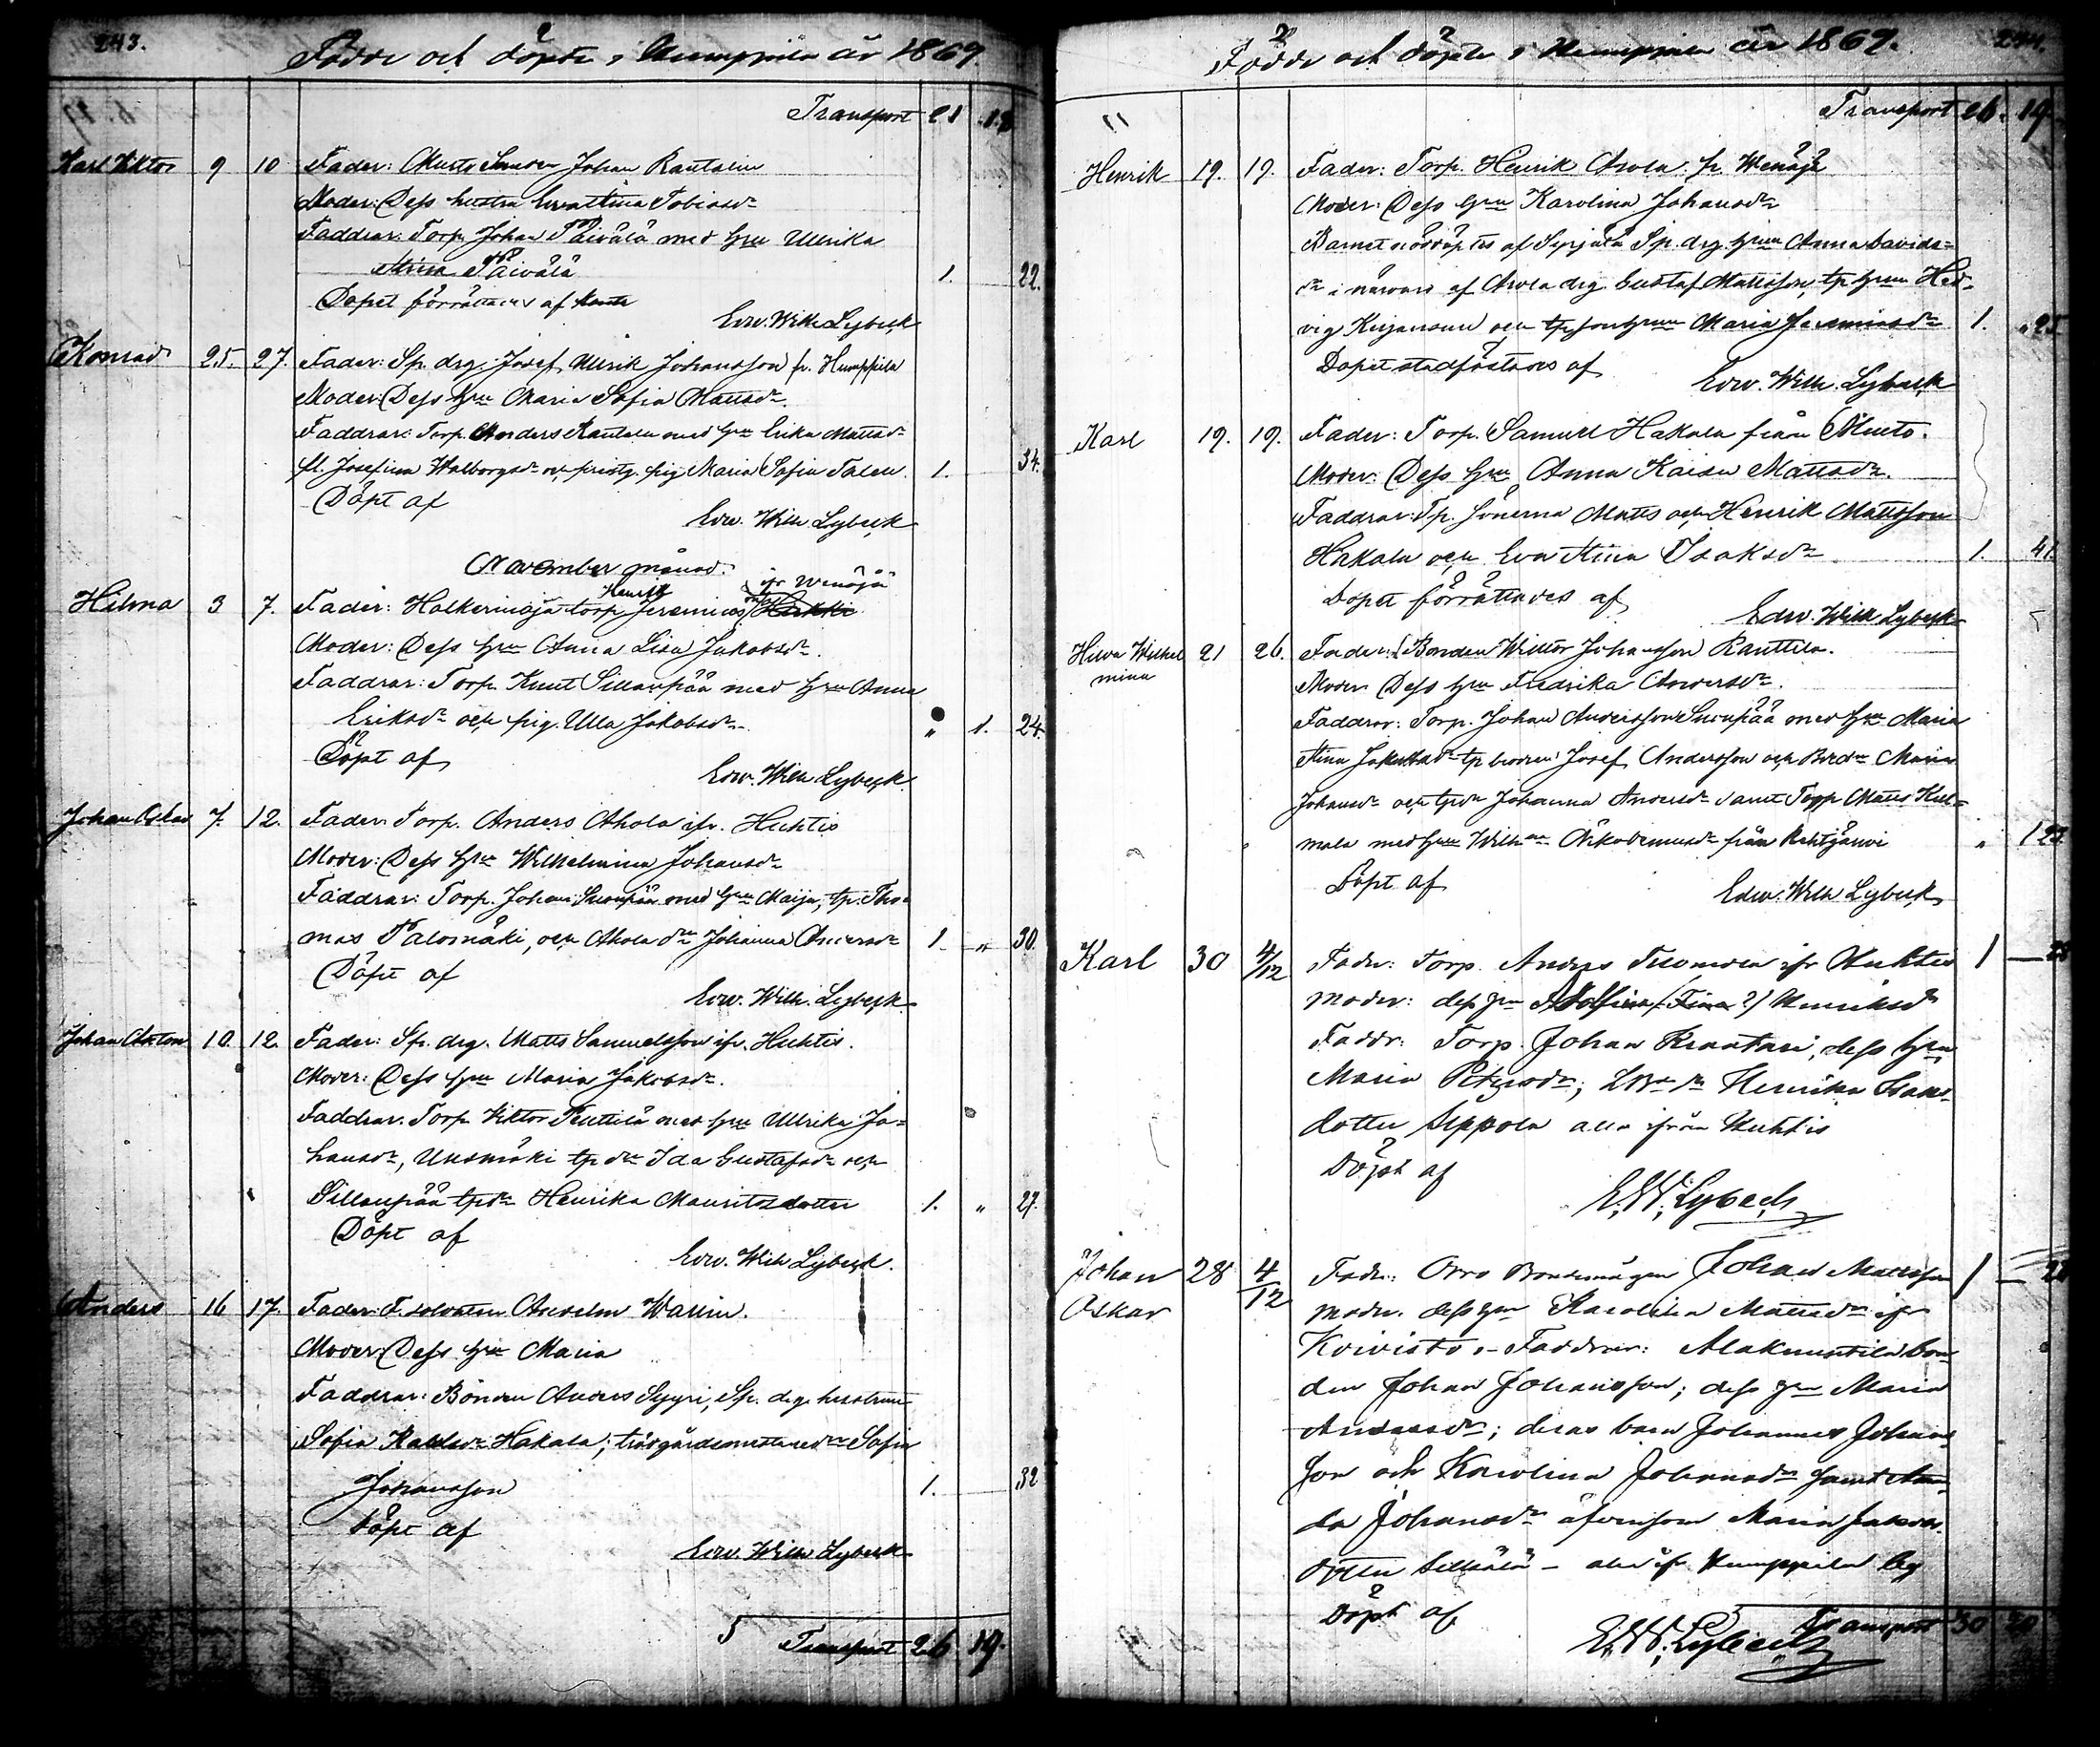 243.
Födde och döpte i Humppila år 1869
Transport 21 18
Karl Viktor 9 10 Fader: Johan Rantalin
Moder: Dess hustru Eva Stina Tobiasdr
Faddrar: Torp. Johan Päivälä med hru Ullrika
Stina Päivälä 1. 22.
Dopet förrättades af
Edw. Wilh. Lybeck
Konrad 25. 27. Fader: Sp. drg. Josef Ulrik Johansson fr. Humppila
Moder: Dess hru Maria Sofia Mattsdr.
Faddrar: Torp. Anders Rantala med hru Erika Mattsdr
fl. Josefina Walborgsdr och pig Maria Sofia Salen. 1. 34.
Döpt af
Edw. Wilh. Lybeck
November månad.
Henrik ifr Wenäjä
Hilma 3 7. Fader: torp. Jeremias Heikki
Moder: Dess hru Anna Lisa Jakobsdr.
Faddrar: Torp. Knut Sillanpää med hru Anna
Eriksdr och pig. Ulla Jakobsdr. „ 1. 24.
Döpt af
Edw. Wilh. Lybeck.
Johan Oskar 7. 12. Fader: Torp. Anders Ahola ifr. Huhtis
Moder: Dess hru Wilhelmina Johansdr
Faddrar: Torp. Johan Suonpää med hru Maija, tp. Tho=
mas Palomäki, och Ahola dr Johanna Andersdr 1. „ 30.
Döpt af
Edw. Wilh. Lybeck.
Johan Anton 10. 12. Fader: Sp. drg. Matts Samuelsson ifr. Huhtis.
Moder: Dess hru Maria Jakobsdr.
Faddrar: Torp. Viktor Penttilä med hru Ullrika Jo=
hansdr, Uusmäki tp dr Ida Gustafsdr och
Sillanpää tpdr Henrika Mauritzdotter 1. „ 27.
Döpt af
Edw. Wilh. Lybeck.
Anders 16 17. Fader: F. soldaten Anselm Warin.
Moder: Dess hru Maria
Faddrar: Bonden Anders Syyri, Sp. drg. hustrun
Sofia Hakala; trädgårdsmästaredr Sofia
Johansson 1. 32
Döpt af
Edw. Wilh. Lybeck
5 Transport 26. 19.
244.
Födde och döpte i Humppila år 1869.
Transport 26. 19.
Henrik 19. 19. Fader: Torp. Henrik Arola fr. Wenäjä
Moder: Dess hru Karolina Johansdr
Barnet nöddöptes af Syrjälä Sp. drg. hrun Anna Davids=
dr i närvaro af Arola drg. Gustaf Mattsson, tp hrun Hed=
vig och Maria Jeremiasdr 1. „ 25
Dopet stadfästades af
Edw. Wilh. Lybeck
Karl 19. 19. Fader: Torp. Samuel Hakala från Murto.
Moder: Dess hru Anna Kaisa Mattsdr.
Faddrar: Tp. sönerna Matts och Henrik Mattsson
Hakala och Eva Stina Isaksdr 1. 41.
Dopet förrättades af
Edw. Wilh Lybeck
Hilda Wilhel 21 26. Fader: Bonden Wiktor Johansson Ranttila.
mina Moder: Dess hru Fredrika Andersdr.
Faddrar: Torp. Johan Andersson Suonpää med hru Maria
Stina Jakobsdr tp brodren Josef Andersson och Maria
Johansdr och tpdr Johanna Andersdr samt Torp Matts Kul=
mala med hru Wilhna från Rehtijärvi „ 1 23.
Döpt af
Edw. Wilh Lybeck
Karl 30 4/12 Fader: Torp. Anders ifr Huhtis 1 — 28
Moder: dess hru (Fina?) Henriksdr
Faddr: Torp. Johan Rantani, dess hru
Maria Petersdr; Henrika Isaks
dotter Seppola alla ifrån Huhtis
Döpt af
E. W. Lybeck
Johan 28 4/12 Fader: Orro Bondemågen Johan Mattsson 1 — 28
Oskar Moder: dess hru Karolina Mattsdr ifr
Koivisto. – Faddrar: Alakmentilä bon
den Johan Johansson; dess hru Maria
Andersdr; deras barn Johannes Johans
son och Karolina Johansdr samt
da Johansdr äfvensom Maria Jakobs
dotter – alla ifr Humppila by
Döpt af
E. W. Lybeck
Transport 30 20